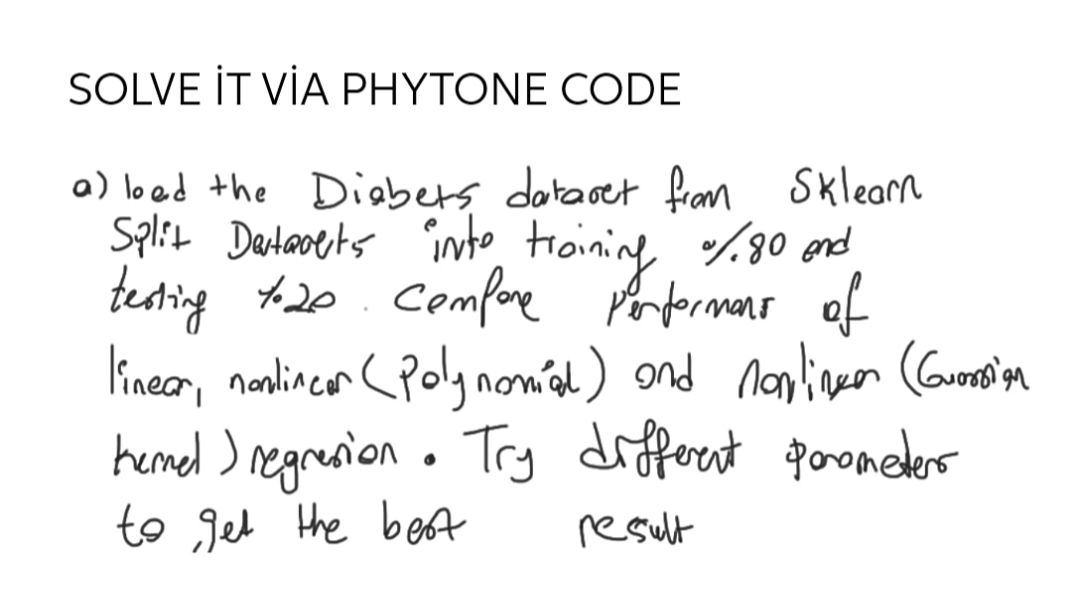 SOLVE İT VİA PHYTONE CODE
a) load the Diabets dataset from Sklearn
Split Datasets into training %80 and
testing %20. Compare performans of
linear, nonlinear (Polynomial) and nonlinear (Guassian
kernel) regresion. Try different parameters
to get the best result